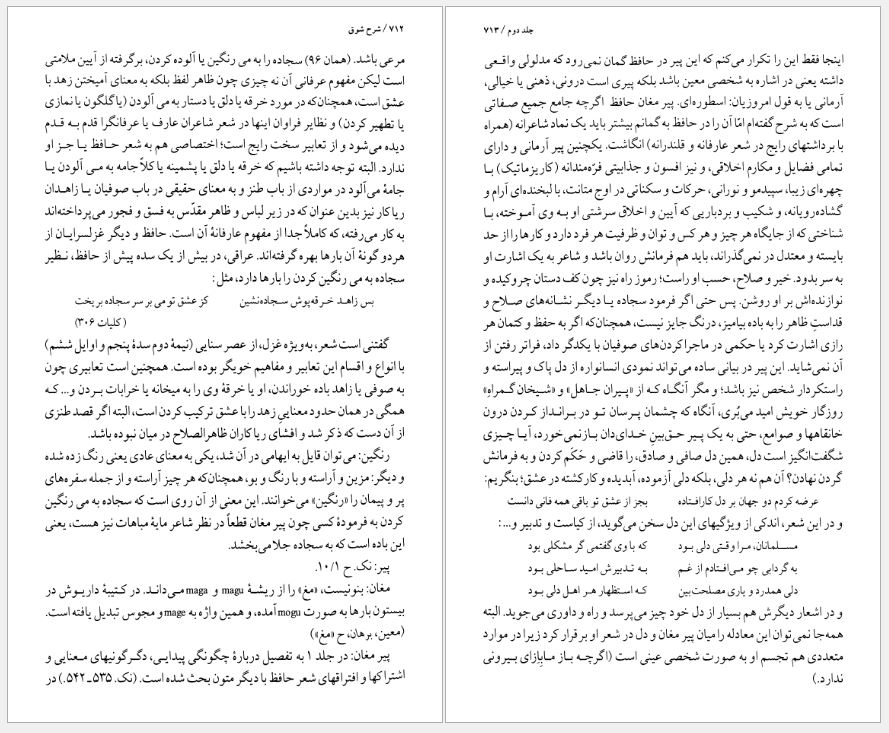 ۷۱۲ / شرح شوق
مرعی باشد. (همان ۹۶) سجاده را به می رنگین یا آلوده کردن، برگرفته از آیین ملامتی
است لیکن مفهوم عرفانی آن نه چیزی چون ظاهر لفظ بلکه به معنای آمیختن زهد با
عشق است، همچنان‌که در مورد خرقه یا دلق یا دستار به می آلودن (یا گلگون یا نمازی
یا تطهیر کردن) و نظایر فراوان اینها در شعر شاعران عارف یا عرفانگرا قدم به قدم
دیده می‌شود و از تعابیر سخت رایج است؛ اختصاصی هم به شعر حافظ یا جز او
ندارد. البته توجه داشته باشیم که خرقه یا دلق یا پشمینه یا کلاً جامه به می آلودن یا
جامهٔ می‌آلود در مواردی از باب طنز و به معنای حقیقی در باب صوفیان یا زاهدان
ریاکار نیز بدین عنوان که در زیر لباس و ظاهر مقدّس به فسق و فجور می‌پرداخته‌اند
به کار می‌رفته، که کاملاً جدا از مفهوم عارفانهٔ آن است. حافظ و دیگر غزلسرایان از
هر دو گونهٔ آن بارها بهره گرفته‌اند. عراقی، در بیش از یک سده پیش از حافظ، نظیر
سجاده به می رنگین کردن را بارها دارد، مثل:
بس زاهد خرقه‌پوش سجاده‌نشین کز عشق تو می بر سر سجاده بریخت
(کلیات ۳۰۶)
گفتنی است شعر، به‌ویژه غزل، از عصر سنایی (نیمهٔ دوم سدهٔ پنجم و اوایل ششم)
با انواع و اقسام این تعابیر و مفاهیم خویگر بوده است. همچنین است تعابیری چون
به صوفی یا زاهد باده خوراندن، او یا خرقهٔ وی را به میخانه یا خرابات بردن و... که
همگی در همان حدود معنایی زهد را با عشق ترکیب کردن است، البته اگر قصد طنزی
از آن دست که ذکر شد و افشای ریاکاران ظاهرالصلاح در میان نبوده باشد.
رنگین: می‌توان قایل به ایهامی در آن شد، یکی به معنای عادی یعنی رنگ زده شده
و دیگر: مزین و آراسته و با رنگ و بو، همچنان‌که هر چیز آراسته و از جمله سفره‌های
پر و پیمان را «رنگین» می‌خوانند. این معنی از آن روی است که سجاده به می رنگین
کردن به فرمودهٔ کسی چون پیر مغان قطعاً در نظر شاعر مایهٔ مباهات نیز هست، یعنی
این باده است که به سجاده جلا می‌بخشد.
پیر: نک. ح ۱۰/۱.
مغان: بنونیست، «مغ» را از ریشهٔ magu و maga می‌داند. در کتیبهٔ داریوش در
بیستون بارها به صورت mogu آمده، و همین واژه به mage و مجوس تبدیل یافته است.
(معین، برهان، ح «مغ»)
پیر مغان: در جلد ۱ به تفصیل دربارهٔ چگونگی پیدایی، دگرگونیهای معنایی و
اشتراکها و افتراقهای شعر حافظ با دیگر متون بحث شده است. (نک. ۵۳۵ـ ۵۴۲.) در
جلد دوم / ۷۱۳
اینجا فقط این را تکرار می‌کنم که این پیر در حافظ گمان نمی‌رود که مدلولی واقعی
داشته یعنی در اشاره به شخصی معین باشد بلکه پیری است درونی، ذهنی یا خیالی،
آرمانی یا به قول امروزیان: اسطوره‌ای. پیر مغان حافظ اگرچه جامع جمیع صفاتی
است که به شرح گفته‌ام امّا آن را در حافظ به گمانم بیشتر باید یک نماد شاعرانه (همراه
با برداشتهای رایج در شعر عارفانه و قلندرانه) انگاشت. یکچنین پیر آرمانی و دارای
تمامی فضایل و مکارم اخلاقی، و نیز افسون و جذابیتی فرّه‌مندانه (کاریزماتیک) با
چهره‌ای زیبا، سپیدمو و نورانی، حرکات و سکناتی در اوج متانت، با لبخنده‌ای آرام و
گشاده‌رویانه، و شکیب و بردباریی که آیین و اخلاق سرشتی او به وی آموخته، با
شناختی که از جایگاه هر چیز و هر کس و توان و ظرفیت هر فرد دارد و کارها را از حد
بایسته و معتدل در نمی‌گذراند، باید هم فرمانش روان باشد و شاعر به یک اشارت او
به سر بدود. خیر و صلاح، حسب او راست؛ رموز راه نیز چون کف دستان چروکیده و
نوازنده‌اش بر او روشن. پس حتی اگر فرمود سجاده یا دیگر نشانه‌های صلاح و
قداستِ ظاهر را به باده بیامیز، درنگ جایز نیست، همچنان‌که اگر به حفظ و کتمان هر
رازی اشارت کرد یا حکمی در ماجراکردن‌های صوفیان با یکدگر داد، فراتر رفتن از
آن نمی‌شاید. این پیر در بیانی ساده می‌تواند نمودی انسانواره از دل پاک و پیراسته و
راستکردار شخص نیز باشد؛ و مگر آنگاه که از «پیران جاهل» و «شیخان گمراه»
روزگار خویش امید می‌بُری، آنگاه که چشمان پرسان تو در برانداز کردن درون
خانقاهها و صوامع، حتی به یک پیر حق‌بینِ خدای‌دان باز نمی‌خورد، آیا چیزی
شگفت‌انگیز است دل، همین دل صافی و صادق، را قاضی و حَکَم کردن و به فرمانش
گردن نهادن؟ آن هم نه هر دلی، بلکه دلی آزموده، آبدیده و کارکشته در عشق؛ بنگریم:
عرضه کردم دو جهان بر دل کارافتاده بجز از عشق تو باقی همه فانی دانست
و در این شعر، اندکی از ویژگیهای این دل سخن می‌گوید، از کیاست و تدبیر و...:
مسلمانان، مرا وقتی دلی بود که با وی گفتمی گر مشکلی بود
به گردابی چو می‌افتادم از غم به تدبیرش امید ساحلی بود
دلی همدرد و یاری مصلحت‌بین که استظهار هر اهل دلی بود
و در اشعار دیگرش هم بسیار از دل خود چیز می‌پرسد و راه و داوری می‌جوید. البته
همه‌جا نمی‌توان این معادله را میان پیر مغان و دل در شعر او برقرار کرد زیرا در موارد
متعددی هم تجسم او به صورت شخصی عینی است (اگرچه باز مابازای بیرونی
ندارد.)